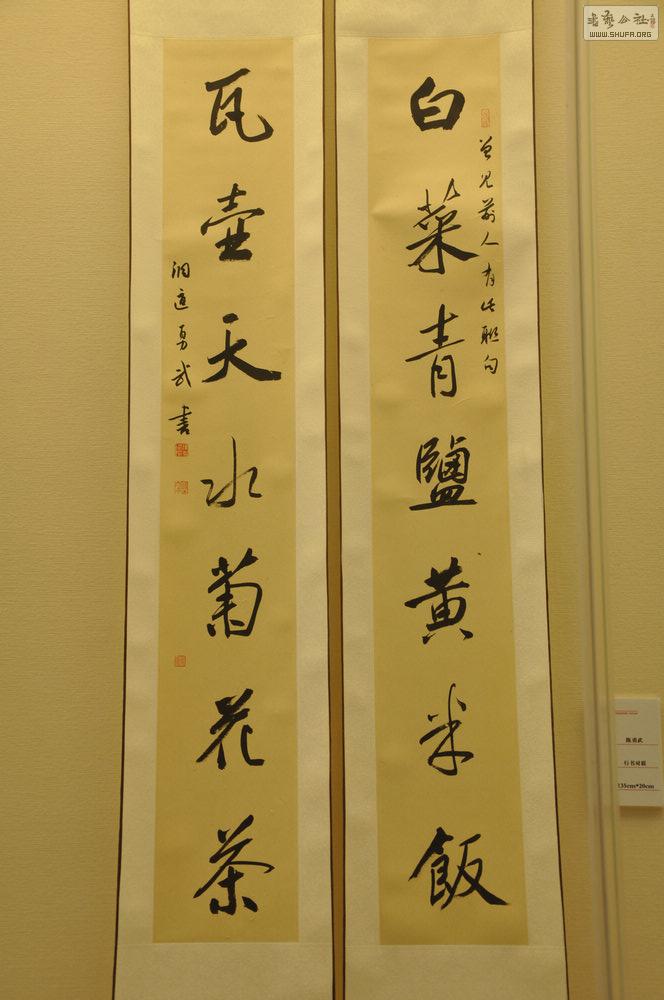 白菜青鹽黄米飯
曾見前人有此聯句
瓦壺天水菊花茶
勇武書
陈勇武
行书对联
135cm*20cm
书艺公社
WWW.SHUFA.ORG